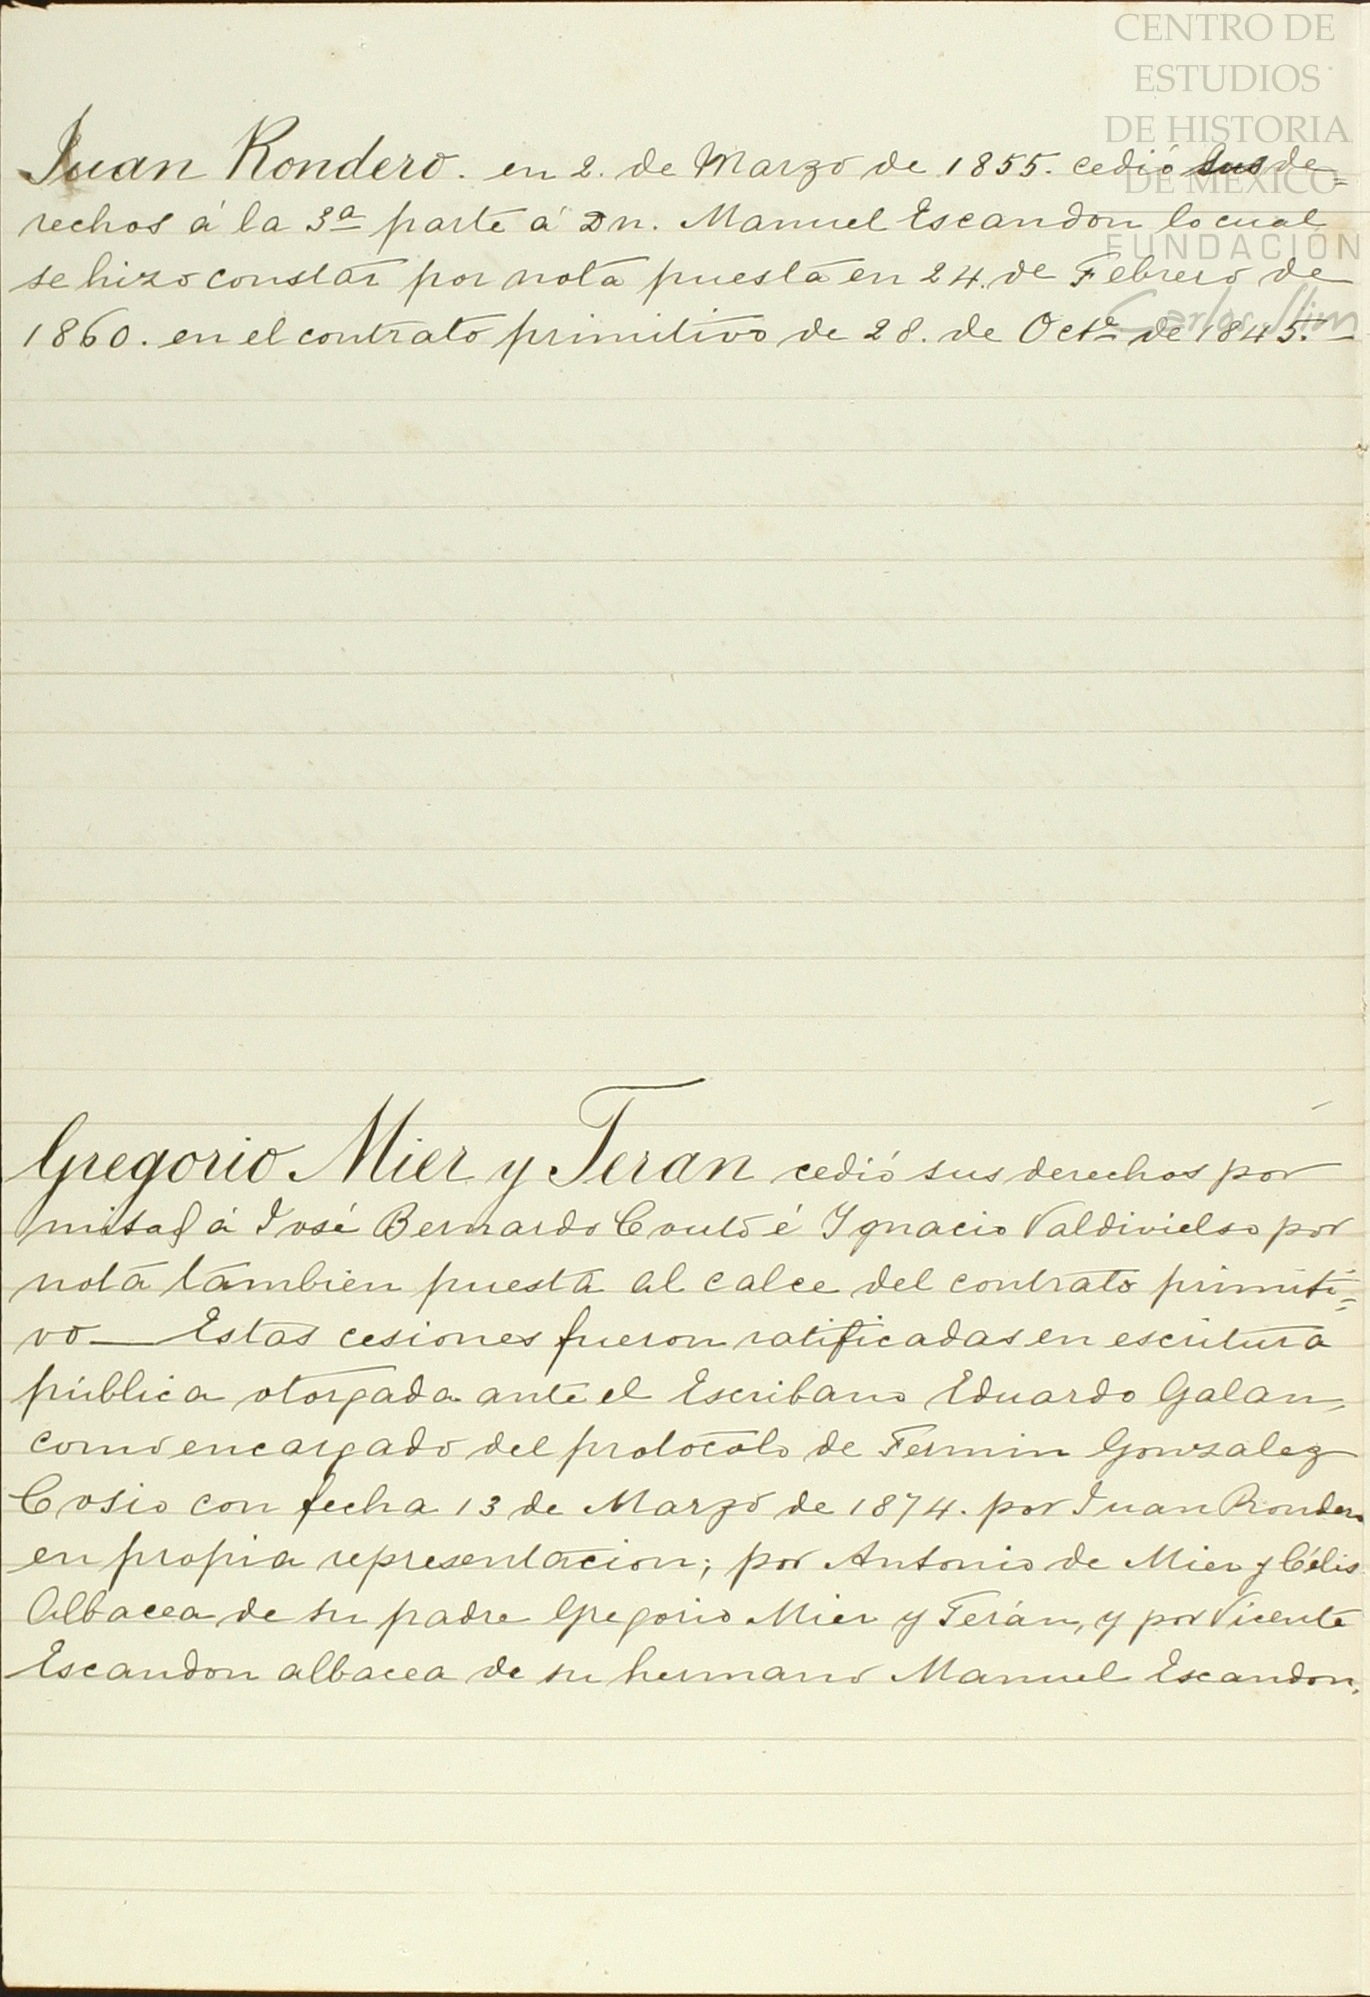 CENTRO DE
ESTUDIOS
DE HISTORIA
DE MÉXICO
FUNDACIÓN
Carlos Slim
Juan Rondero. en 2. de Marzo de 1855. cedió sus de=
rechos á la 3ª parte á Dn. Manuel Escandon lo cual
se hizo constar por nota puesta en 24. de Febrero de
1860. en el contrato primitivo de 28. de Octe. de 1845.—
Gregorio Mier y Teran cedió sus derechos por
mitad á José Bernardo Couto é Ygnacio Valdivielso por
nota tambien puesta al calce del contrato primiti=
vo — Estas cesiones fueron ratificadas en escritura
pública otorgada ante el Escribano Eduardo Galan,
como encargado del protocolo de Fermin Gonzalez
Cosio con fecha 13 de Marzo de 1874. por Juan Rondero
en propia representacion; por Antonio de Mier y Célis
Albacea de su padre Gregorio Mier y Terán, y por Vicente
Escandon albacea de su hermano Manuel Escandon.